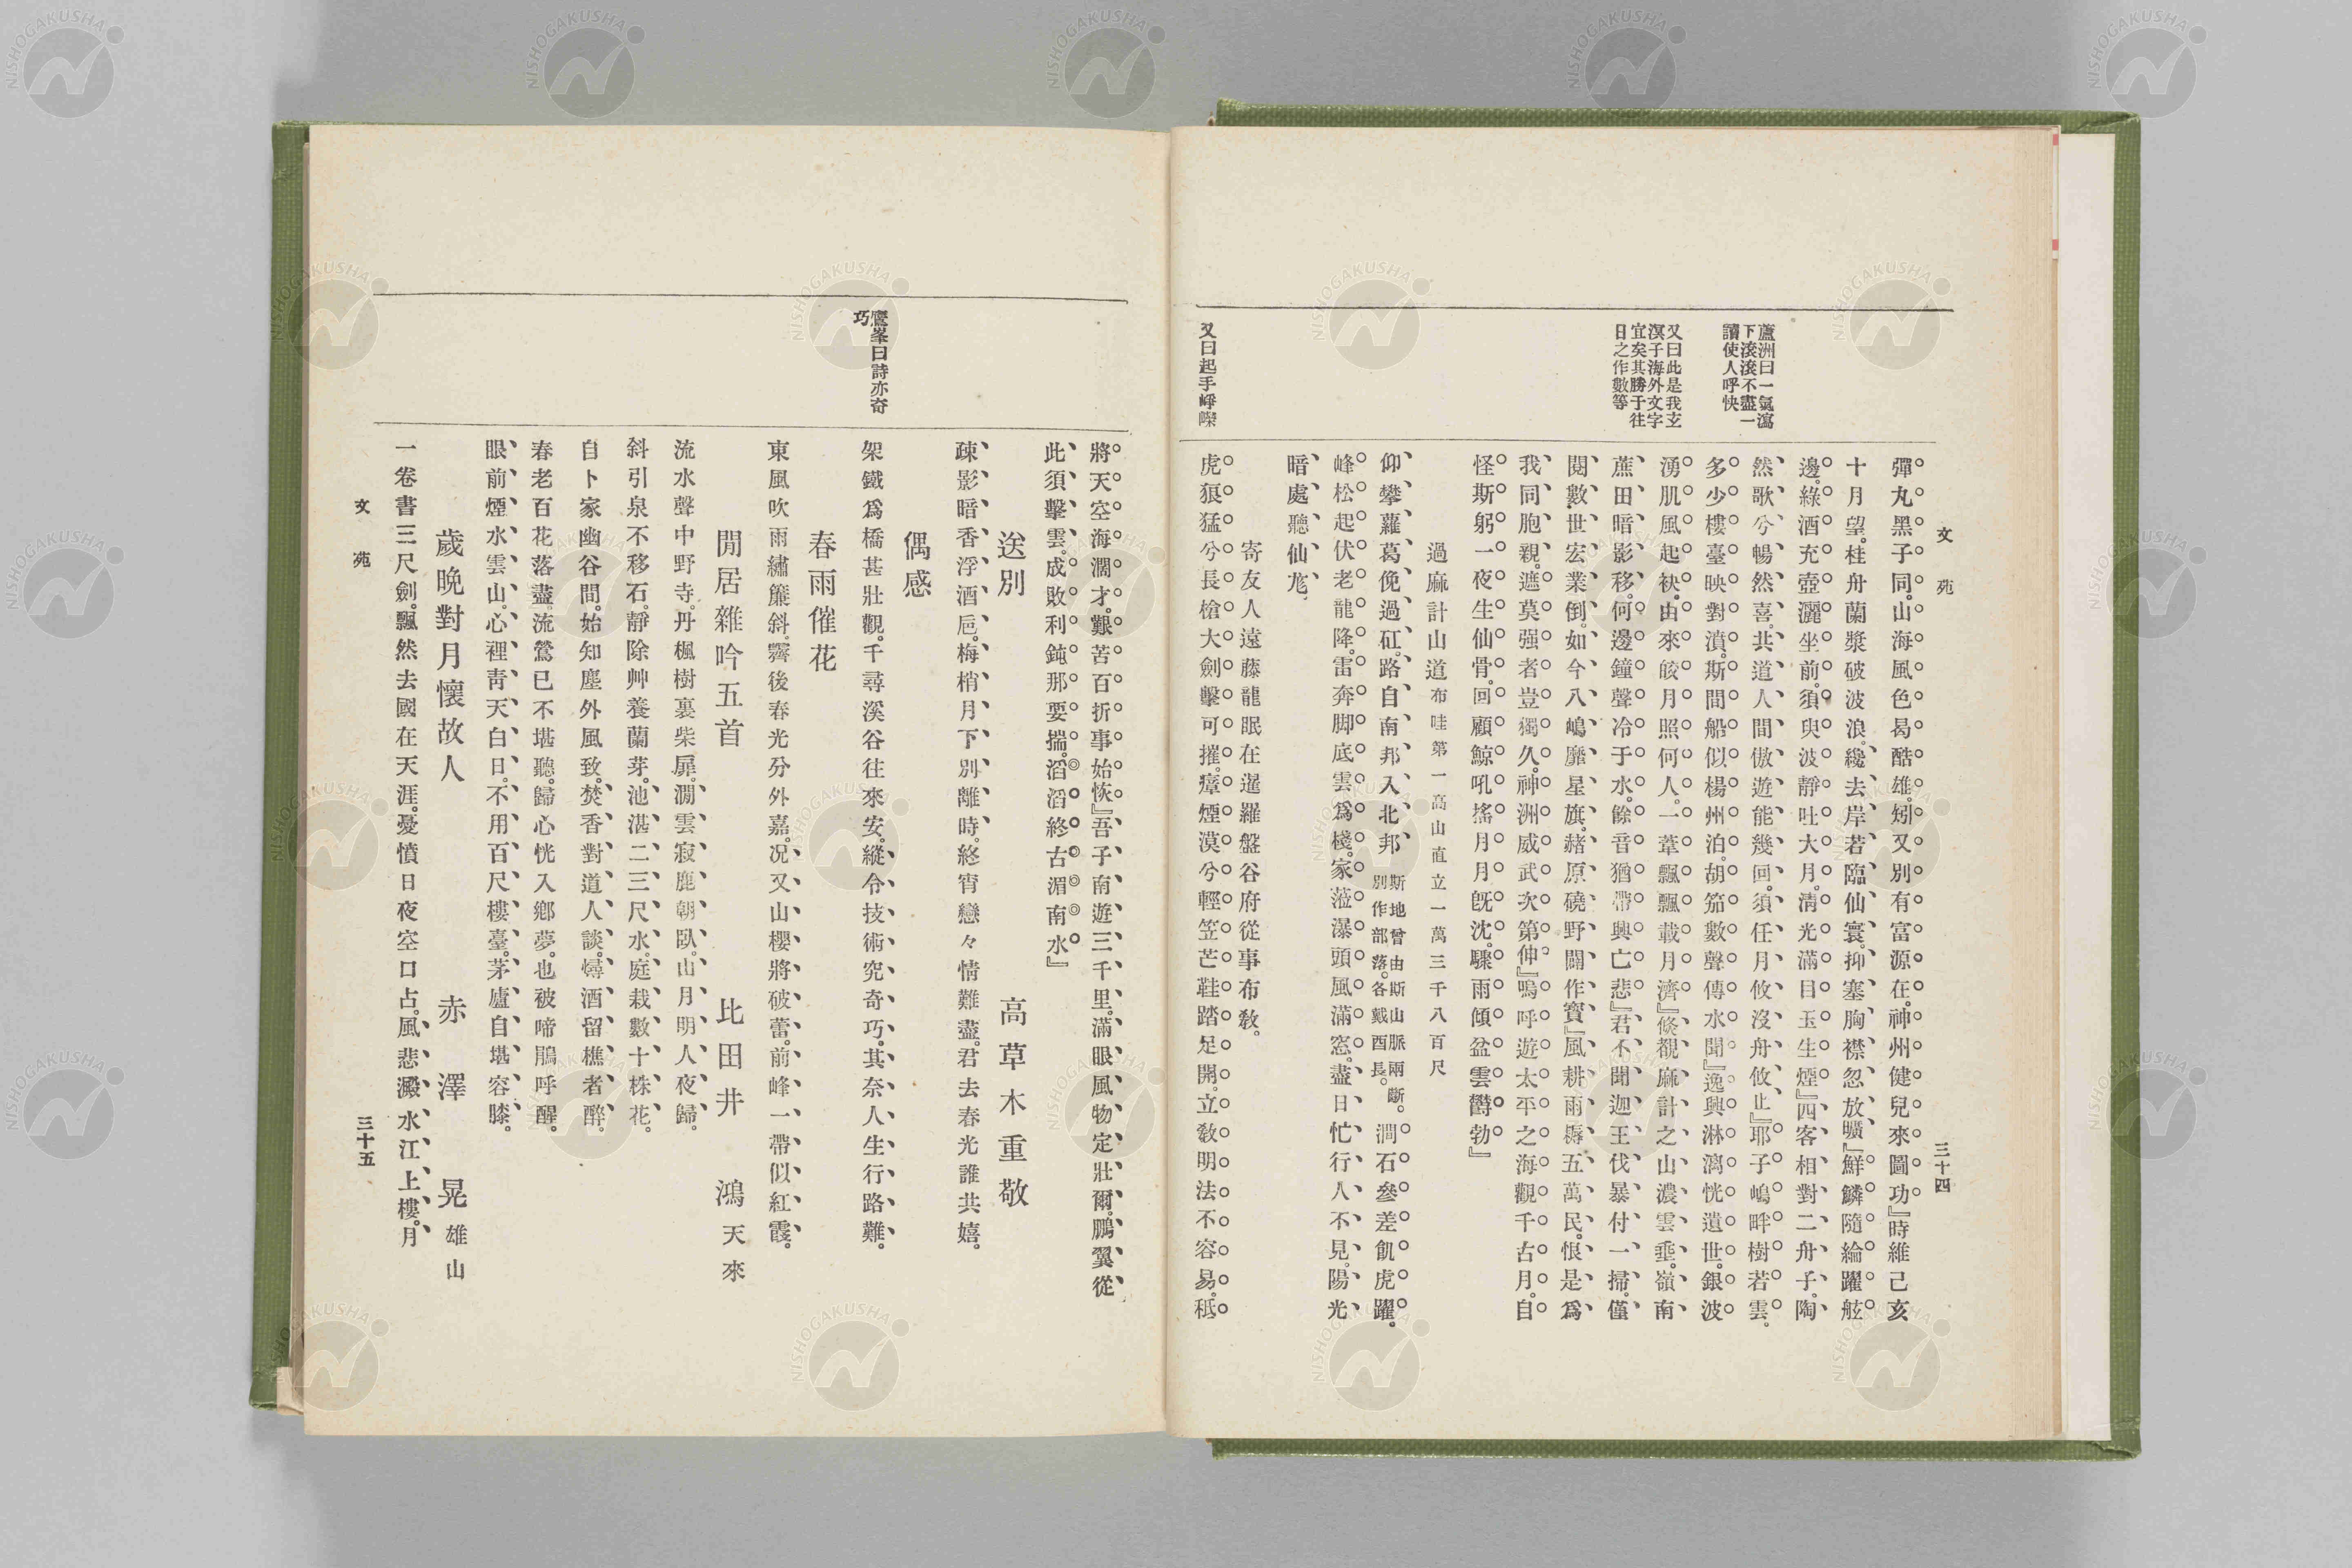 文苑
三十四
蘆洲曰一氣瀉
下滾滾不盡一
讀使人呼快
又曰此是我玄
溟子海外文字
宜矣其勝于往
日之作數等
又曰起手崢嶸
彈丸黑子同。山海風色曷酷雄。矧又別有富源在。神州健兒來圖功』時維己亥
十月望。桂舟蘭槳破波浪。纔去岸若臨仙寰。抑塞胸襟忽放曠』鮮鱗隨綸躍舷
邊。綠酒充壺灑坐前。須臾波靜吐大月。清光滿目玉生煙』四客相對二舟子。陶
然歌兮暢然喜。共道人間傲遊能幾回。須任月攸沒舟攸止』耶子嶋畔樹若雲。
多少樓臺映對濆。斯間船似楊州泊。胡笳數聲傳水聞』逸興淋漓恍遺世。銀波
湧肌風起袂。由來皎月照何人。一葦飄飄載月濟』倐覩麻計之山濃雲垂。嶺南
蔗田暗影移。何邊鐘聲冷于水。餘音猶帶興亡悲』君不聞迦王伐暴付一掃。僅
閱數世宏業倒。如今八嶋靡星旗。赭原磽野闢作寳』風耕雨耨五萬民。恨是爲
我同胞親。遮莫强者豈獨久。神洲威武次第伸』嗚呼遊太平之海觀千古月。自
怪斯躬一夜生仙骨。回顧鯨吼搖月月既沈。驟雨傾盆雲欝勃』
過麻計山道布哇第一高山直立一萬三千八百尺
仰攀蘿葛俛過矼。路自南邦入北邦斯地曾由斯山脈兩斷。別作部落。各戴酉長。澗石參差飢虎躍。
峰松起伏老龍降。雷奔脚底雲爲棧。家蒞瀑頭風滿窓。盡日忙行人不見。陽光
暗處聽仙尨。
寄友人遠藤龍眠在暹羅盤谷府從事布敎。
虎狼猛兮長槍大劍擊可摧。瘴煙漠兮輕笠芒鞋踏足開。立敎明法不容易。秪
鷹峯曰詩亦奇
巧
將天空海濶才。艱苦百折事始恢』吾子南遊三千里。滿眼風物定壯爾。鵬翼從
此須擊雲。成敗利鈍那要揣。滔滔終古湄南水』
送別　高草木重敬
疎影暗香浮酒巵。梅梢月下別離時。終宵戀々情難盡。君去春光誰共嬉。
偶感
架鐵爲橋甚壯觀。千尋溪谷往來安。縱令技術究奇巧。其奈人生行路難。
春雨催花
東風吹雨繡簾斜。霽後春光分外嘉。况又山櫻將破蕾。前峰一帶似紅霞。
閒居雜吟五首　比田井鴻天來
流水聲中野寺。丹楓樹裏柴扉。澗雲寂鹿朝臥。山月明人夜歸。
斜引泉不移石。靜除艸養蘭芽。池湛二三尺水。庭栽數十株花。
自卜家幽谷間。始知塵外風致。焚香對道人談。燖酒留樵者醉。
春老百花落盡。流鶯已不堪聽。歸心恍入鄉夢。也被啼鵑呼醒。
眼前煙水雲山。心裡青天白日。不用百尺樓臺。茅廬自堪容膝。
歲晩對月懷故人　赤澤晃雄山
一卷書三尺劍。飄然去國在天涯。憂憤日夜空口占。風悲澱水江上樓。月
文苑
三十五